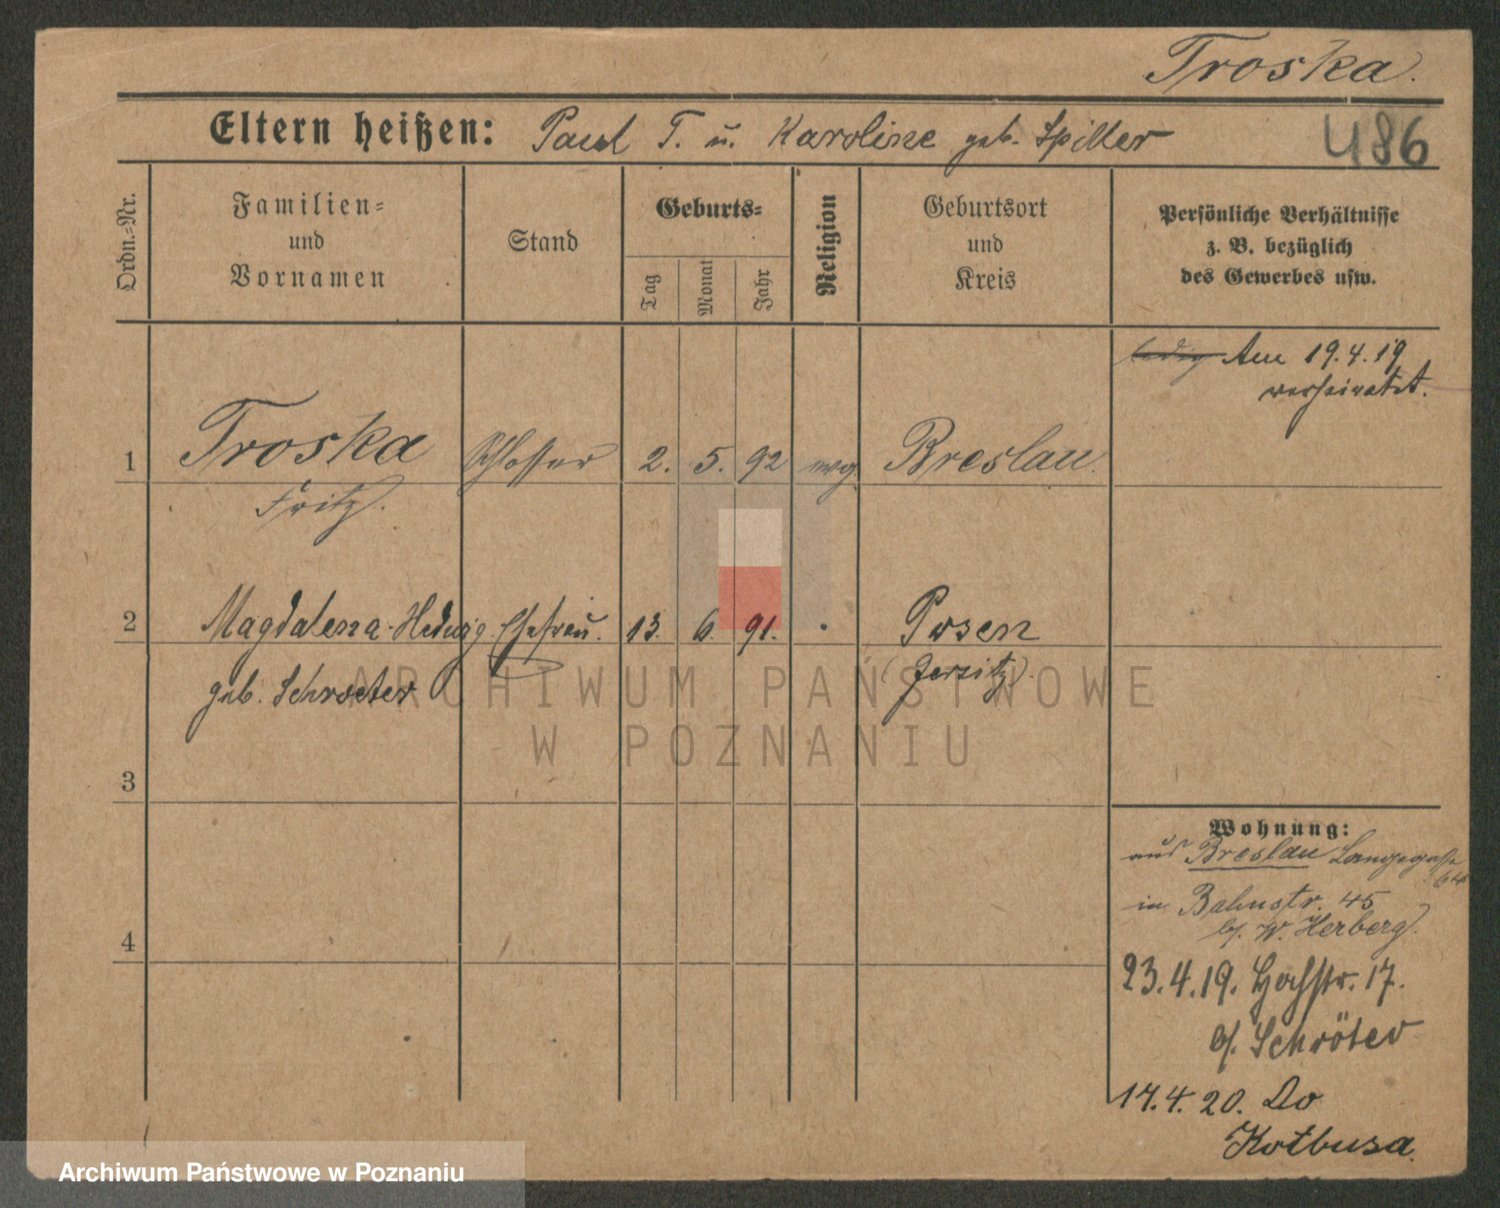 Troska.
Eltern heißen: Paul T. u. Karoline geb. Spiller
486
Ordn.-Nr.
Familien-
und
Vornamen
Stand
Geburts-
Tag
Monat
Jahr
Religion
Geburtsort
und
Kreis
Persönliche Verhältnisse
z. B. bezüglich
des Gewerbes usw.
ledig Am 19.4.19
verheiratet.
1 Troska Schlosser 2. 5. 92 evg. Breslau.
Fritz.
2 Magdalena Hedwig Ehefrau. 13. 6. 91. Posen
geb. Schroeter (Jersitz).
3
4
Wohnung:
aus Breslau Langegasse
64
in Bahnstr. 45
b/. W. Herberg.
23.4.19. Hochstr. 17.
b/. Schröter
17.4.20. Do
Kotbusa.
ARCHIWUM PAŃSTWOWE
W POZNANIU
Archiwum Państwowe w Poznaniu